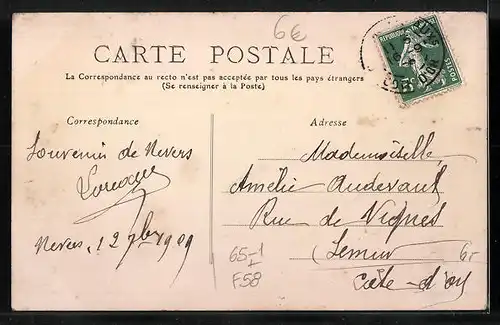 6€
CARTE POSTALE
La Correspondance au recto n'est pas acceptée par tous les pays étrangers
(Se renseigner à la Poste)
Correspondance
Adresse
Souvenir de Nevers
Nevers, 12 7bre 1909
Mademoiselle
Amélie Audevaut
Rue de Vignes
Semur
Côte-d'or
65-1
F58
6-